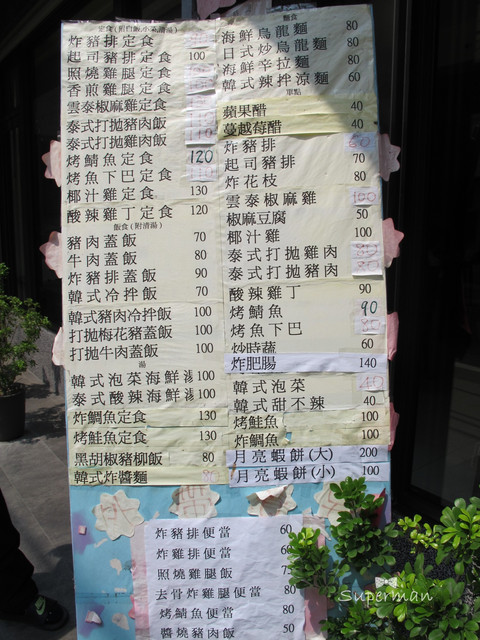 定食(附白飯,小菜,清湯)
炸豬排定食
起司豬排定食 100
照燒雞腿定食
香煎雞腿定食
雲泰椒麻雞定食
泰式打拋豬肉飯
泰式打拋雞肉飯
烤鯖魚定食 120
烤魚下巴定食
椰汁雞定食 130
酸辣雞丁定食 120
飯食(附清湯)
豬肉蓋飯 70
牛肉蓋飯 80
炸豬排蓋飯 90
韓式冷拌飯 70
韓式豬肉冷拌飯 100
打拋梅花豬蓋飯 100
打拋牛肉蓋飯 100
湯
韓式泡菜海鮮湯 100
泰式酸辣海鮮湯 100
炸鯛魚定食 130
烤鮭魚定食 130
黑胡椒豬柳飯 80
韓式炸醬麵
麵食
海鮮烏龍麵 80
日式炒烏龍麵 80
海鮮辛拉麵 80
韓式辣拌涼麵 60
單點
蘋果醋 40
蔓越莓醋 40
炸豬排
起司豬排 70
炸花枝 80
雲泰椒麻雞 100
椒麻豆腐 50
椰汁雞 100
泰式打拋雞肉
泰式打拋豬肉
酸辣雞丁 90
烤鯖魚 90
烤魚下巴
炒時蔬 60
炸肥腸 140
韓式泡菜 40
韓式甜不辣 40
烤鮭魚 100
炸鯛魚 100
月亮蝦餅(大) 200
月亮蝦餅(小) 100
炸豬排便當 60
炸雞排便當 60
照燒雞腿飯 70
去骨炸雞腿便當 80
烤鯖魚便當 80
醬燒豬肉飯 50
Superman